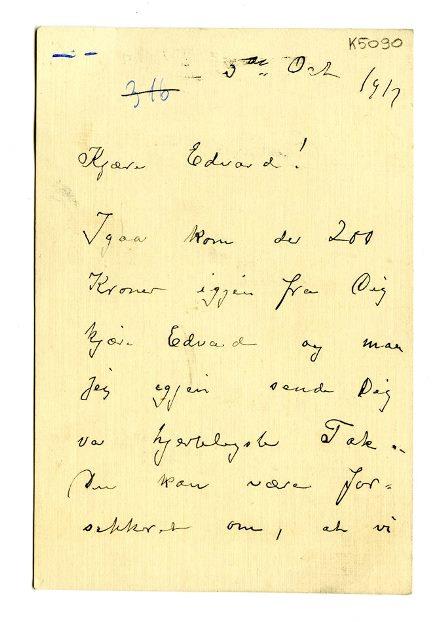 K5090
316
3die Oct 1917
Kjære Edvard!
Igaar kom der 200
Kroner igjen fra Dig
kjære Edvard og maa
jeg egjen sende Dig
vor hjerteligste Tak.
Du kan være for=
sikkret om, at vi